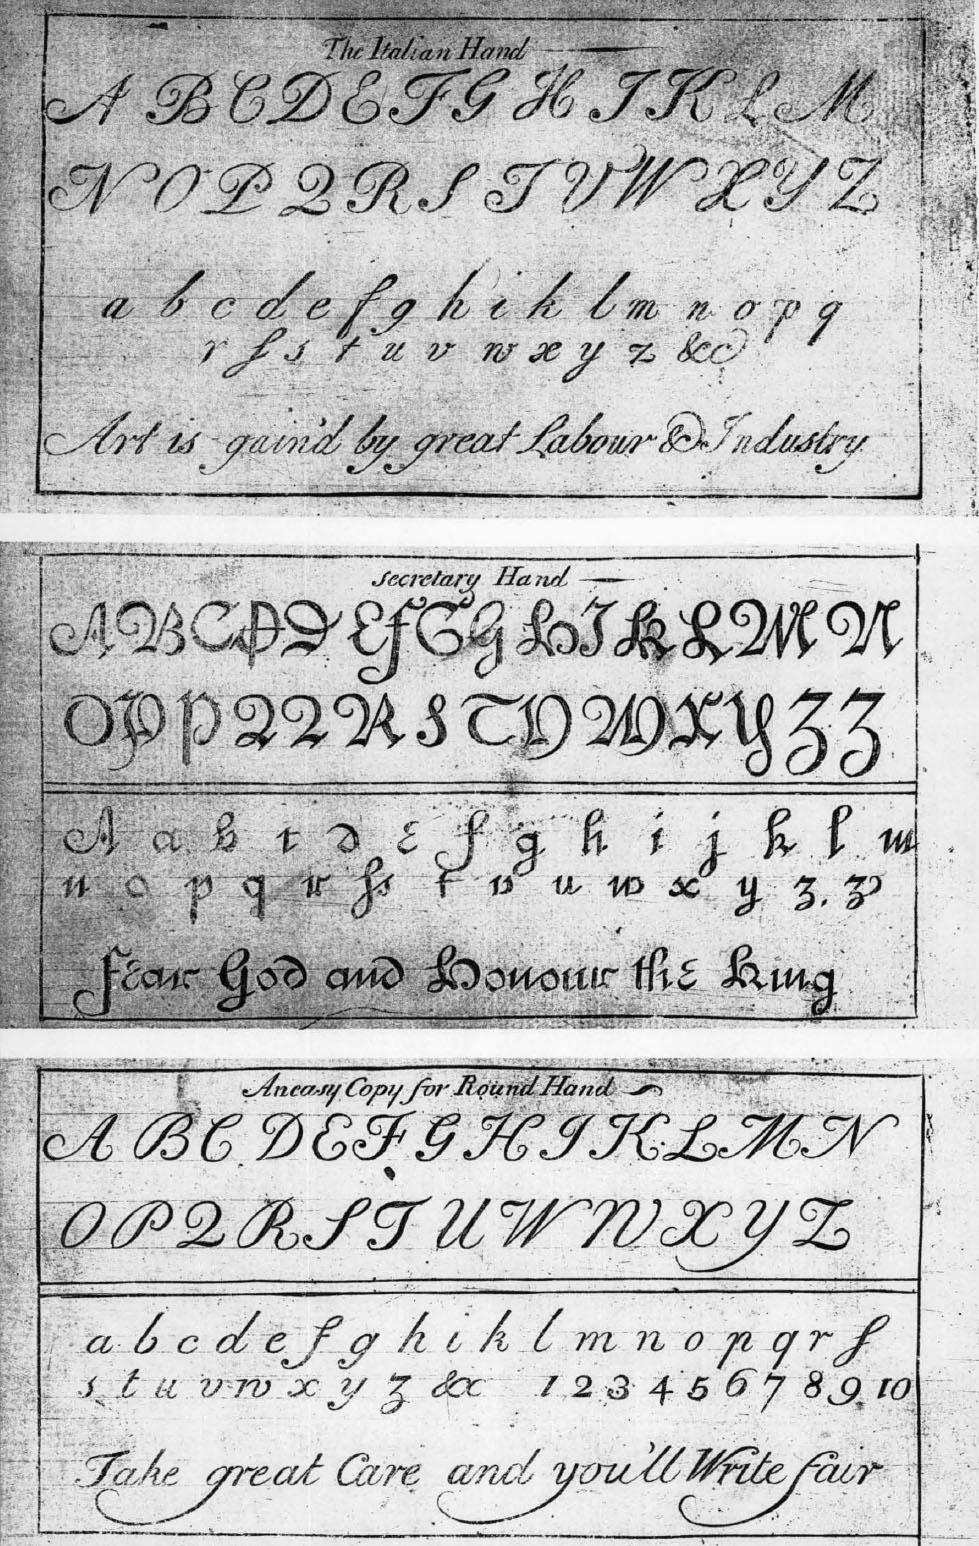 The Italian Hand
A B C D E F G H I K L M
N O P Q R S T V W X Y Z
a b c d e f g h i k l m n o p q
r ſ s t u v w x y z &c
Art is gain'd by great Labour & Industry
Secretary Hand
A B C D D E F G G H I K L M N
O P P Q Q R S T V W X Y Z Z
A a b c d e f g h i j k l m
n o p q r ſ s t v u w x y z. z
Fear God and Honour the King
An easy Copy for Round Hand
A B C D E F G H I K L M N
O P Q R S T U W W X Y Z
a b c d e f g h i k l m n o p q r ſ
s t u v w x y z &c 1 2 3 4 5 6 7 8 9 10
Take great Care and you'll Write fair